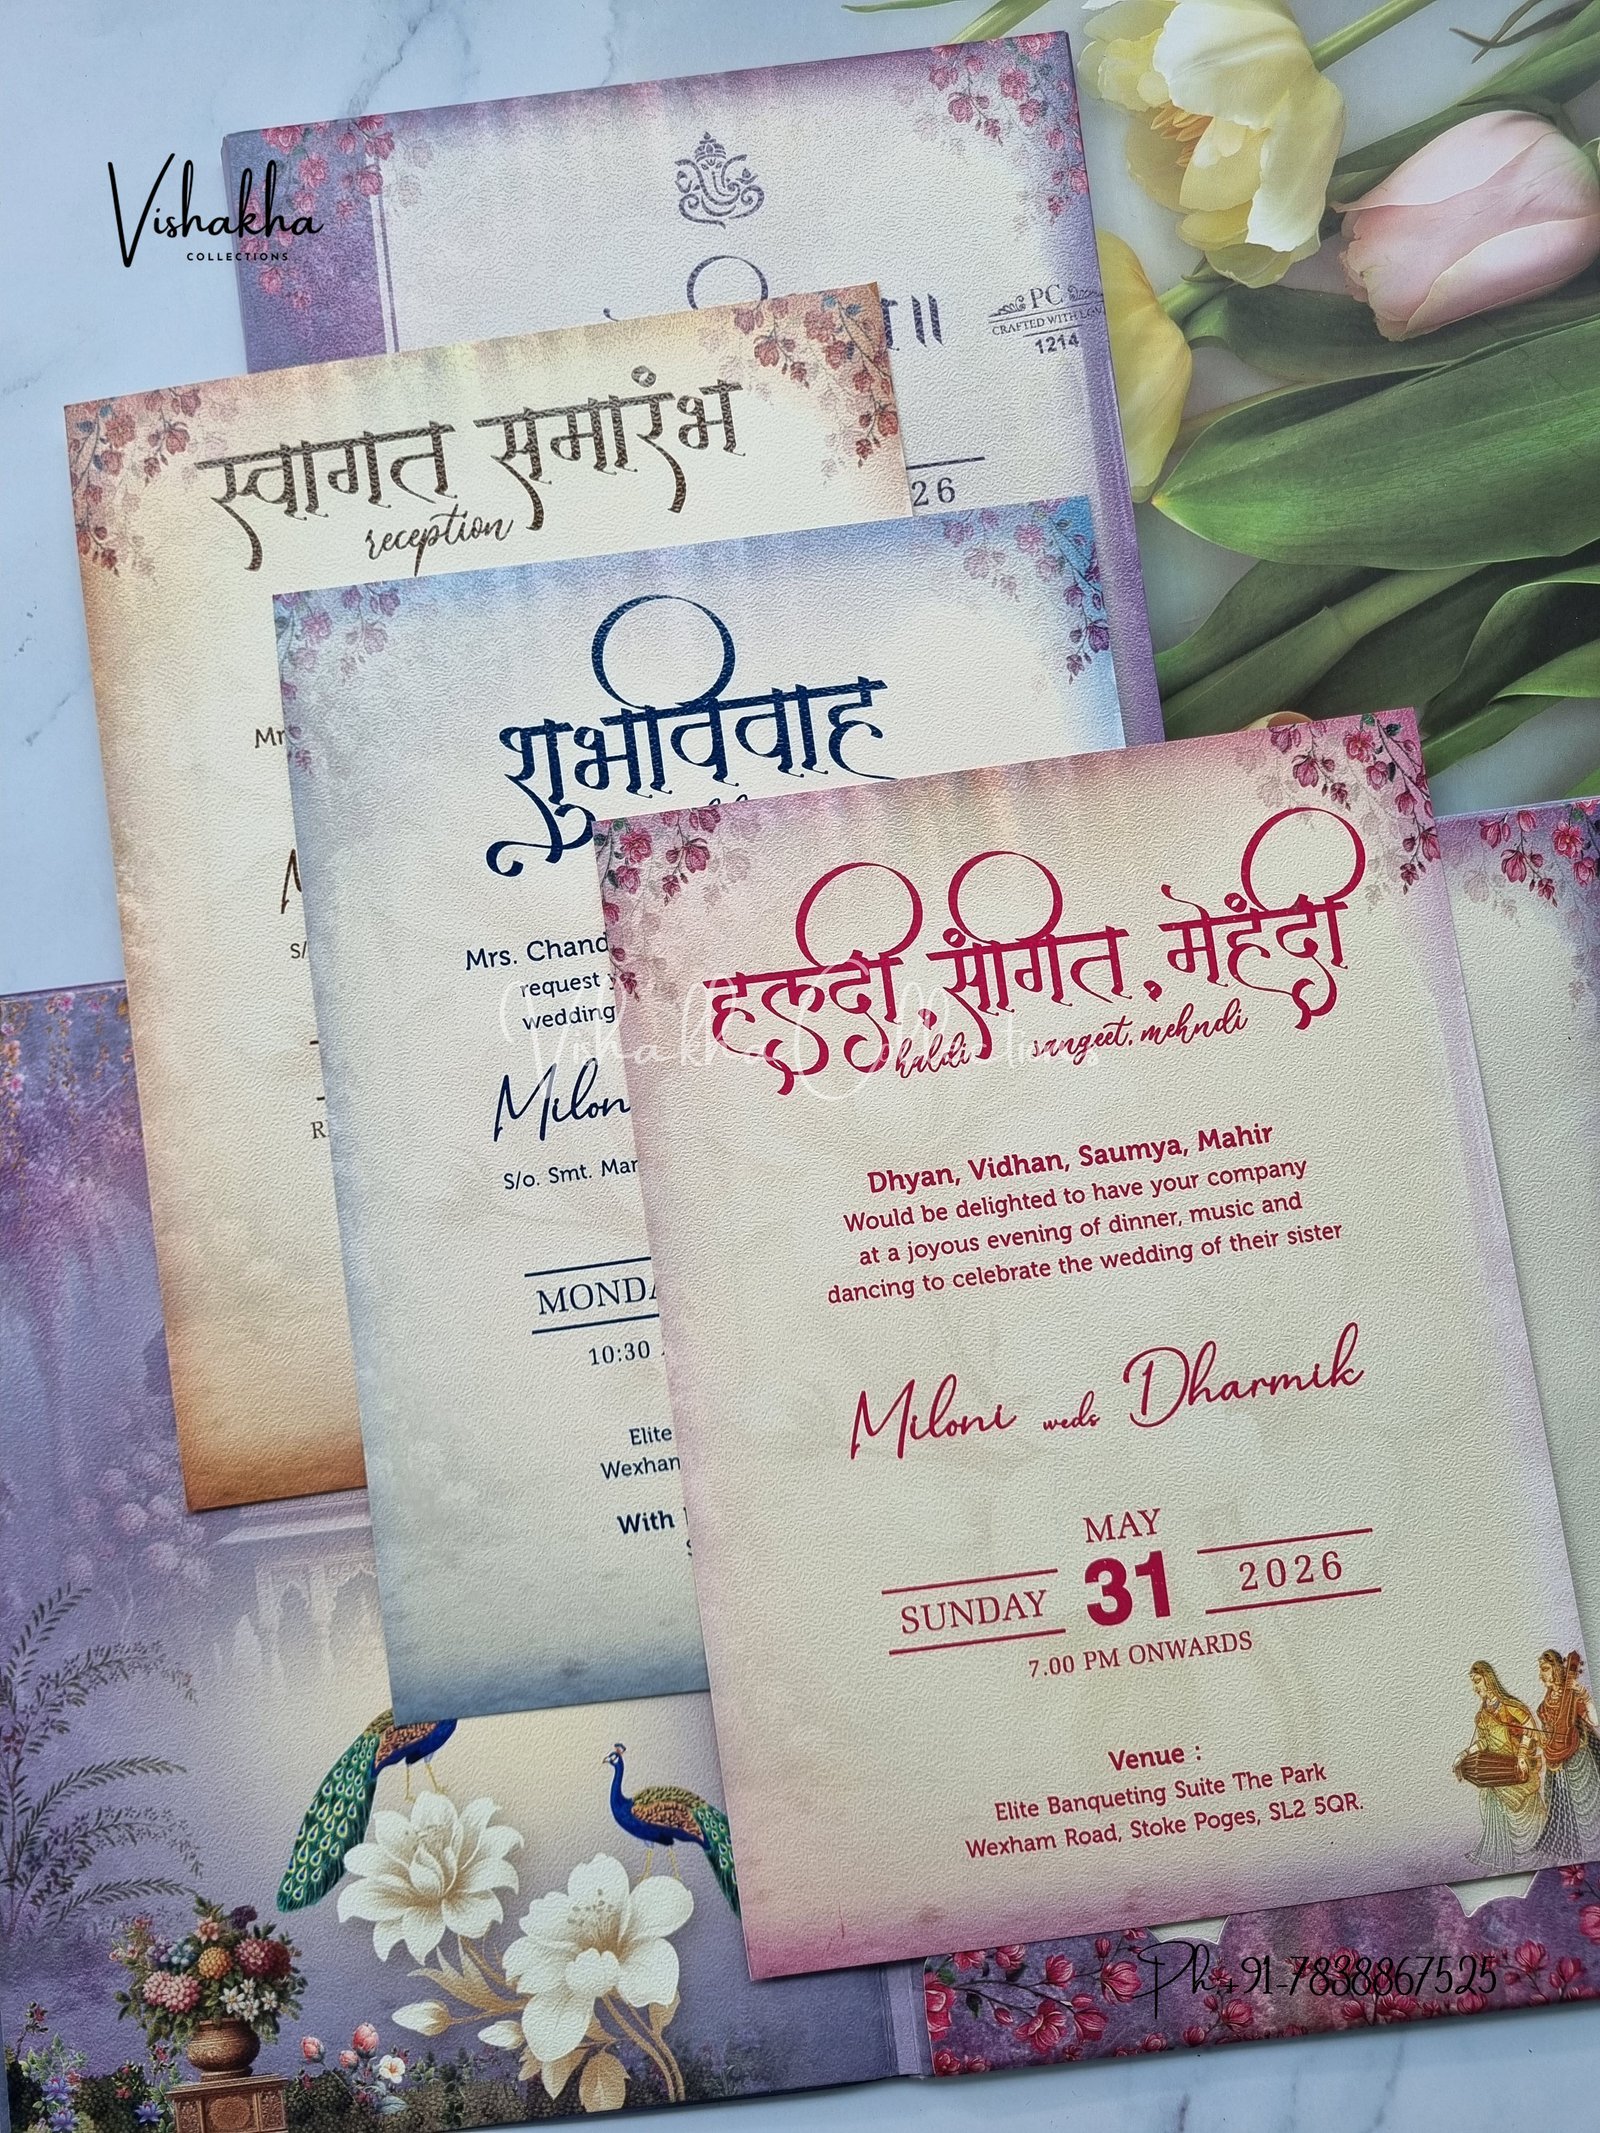 Vishakha
COLLECTIONS
PC
CRAFTED WITH LOVE
1214
26
स्वागत समारंभ
reception
Mr
शुभविवाह
Mrs. Chand
request
wedding
Milon
S/o. Smt. Mar
MONDA
10:30
Elite
Wexham
With
S/
हल्दी, संगित, मेहंदी
haldi sangeet, mehndi
Vishakha Collections
Dhyan, Vidhan, Saumya, Mahir
Would be delighted to have your company
at a joyous evening of dinner, music and
dancing to celebrate the wedding of their sister
Miloni weds Dharmik
MAY
SUNDAY 31 2026
7.00 PM ONWARDS
Venue :
Elite Banqueting Suite The Park
Wexham Road, Stoke Poges, SL2 5QR.
Ph:+91-7838867525